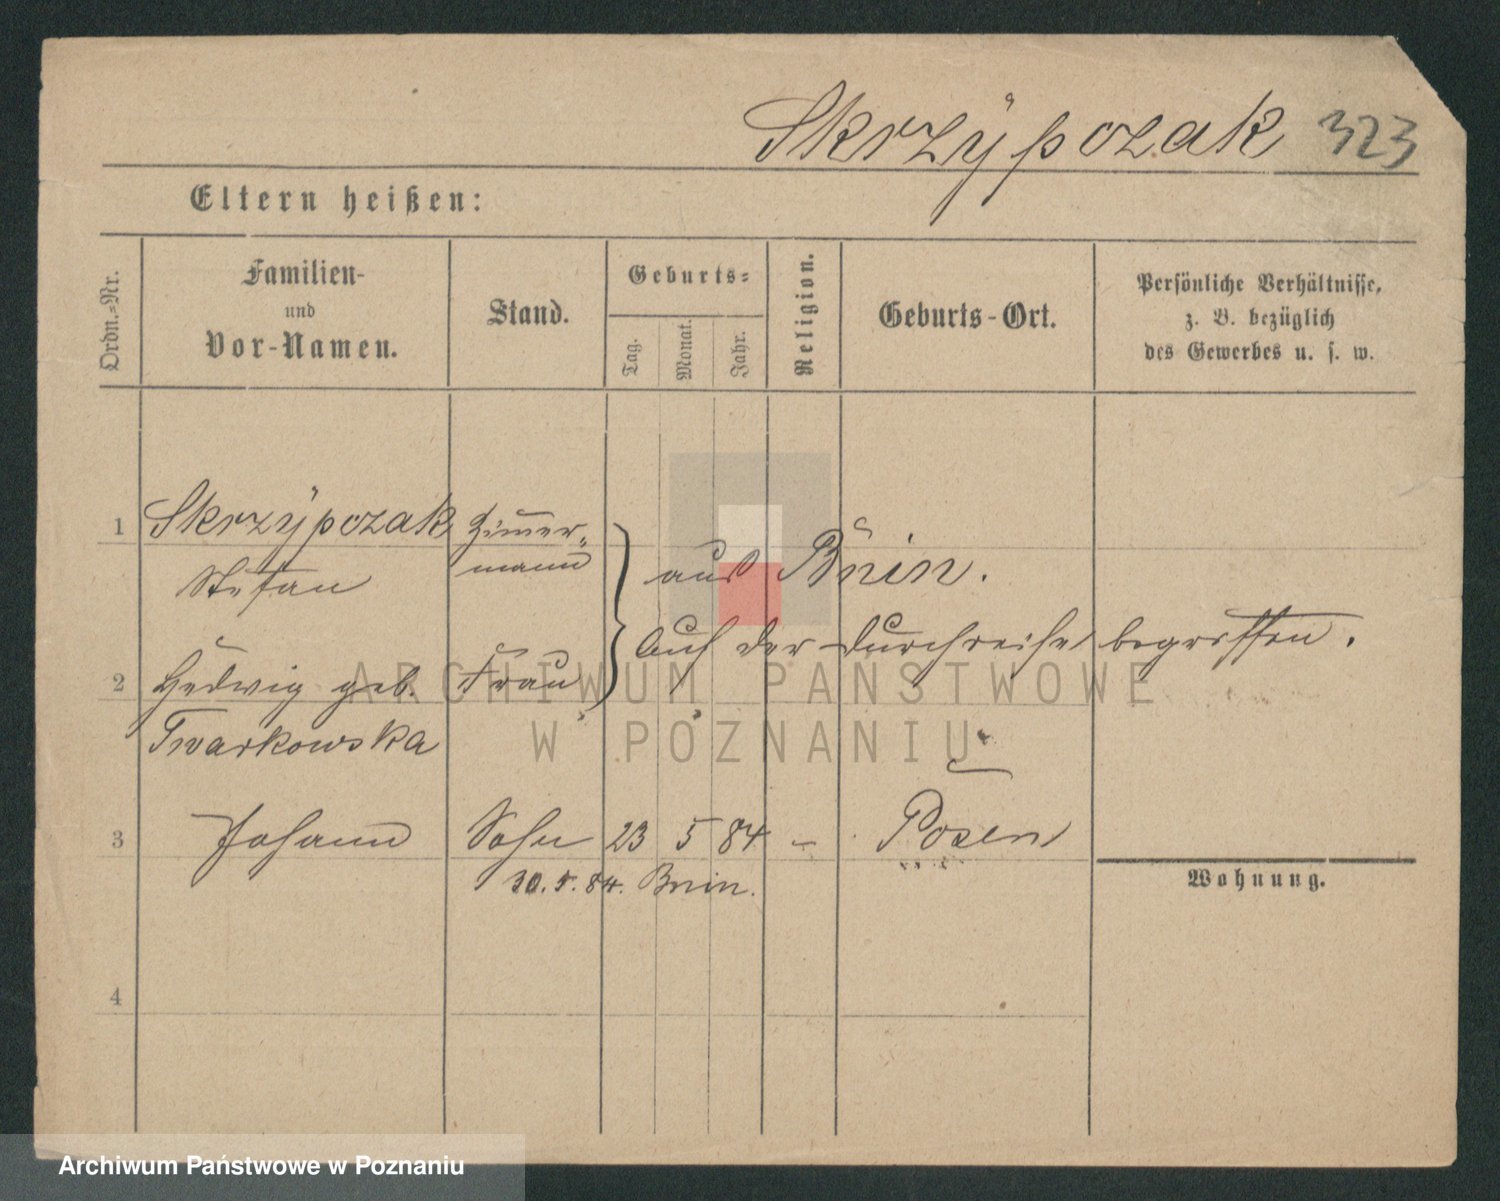 Skrzÿpczak 323
Eltern heißen:
Ordn.-Nr.
Familien-
und
Vor-Namen.
Stand.
Geburts-
Tag.
Monat.
Jahr.
Religion.
Geburts-Ort.
Persönliche Verhältnisse,
z. B. bezüglich
des Gewerbes u. s. w.
1 Skrzÿpczak Zimer-
mann
Stefan
aus Bnin.
Auf der Durchreise begriffen.
2 Hedwig geb. Frau
Twarkowska
3 Johann Sohn 23 5 84 – Posen
30. 5. 84. Bnin.
Wohnung.
4
ARCHIWUM PAŃSTWOWE
W POZNANIU
Archiwum Państwowe w Poznaniu